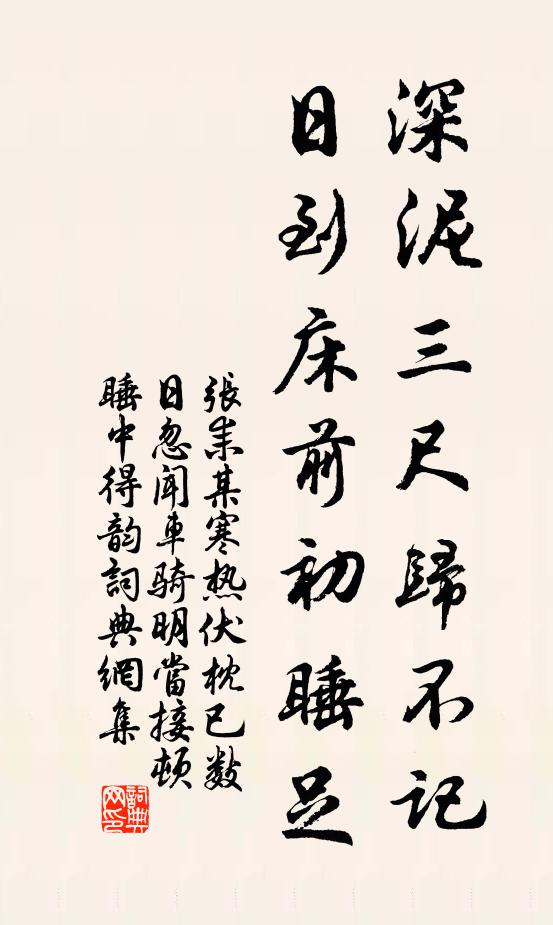 深泥三尺歸不記
日到床前初睡足
張耒某寒热伏枕已数
日忽闻車骑明當接頓
睡中得韵詞典網集
詞典网印